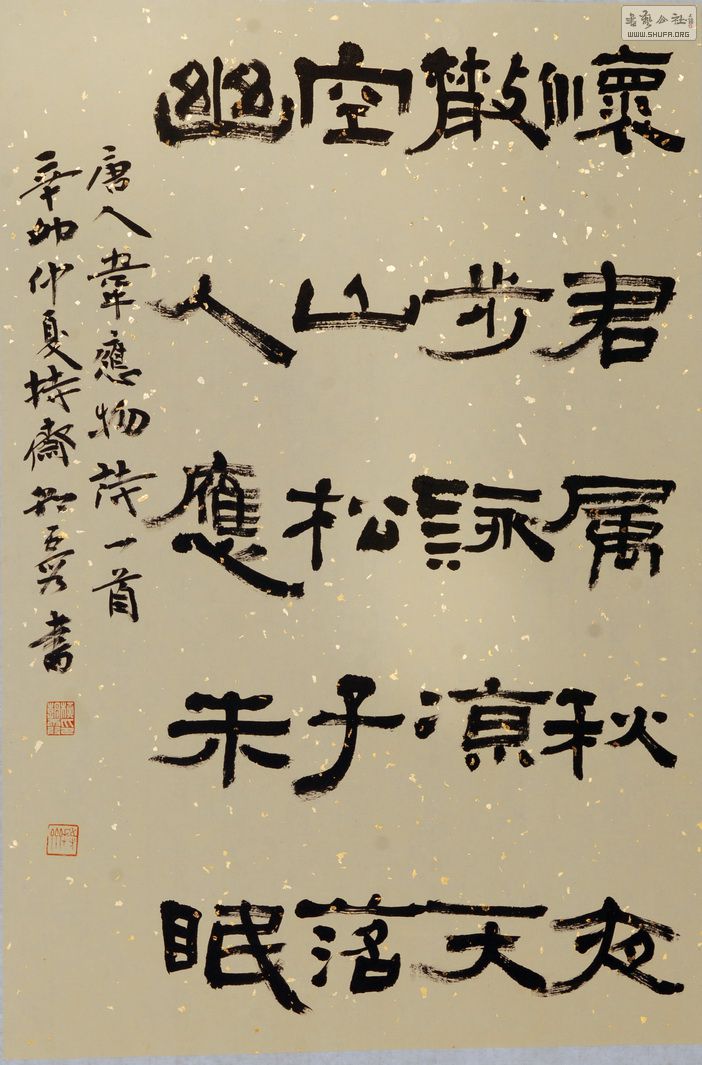 懷君属秋夜
散步詠涼天
空山松子落
幽人應未眠
唐人韋應物詩一首
辛卯仲夏持齋書
书艺公社
WWW.SHUFA.ORG